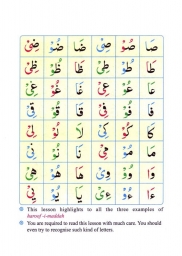 صَا صُوْ صِىْ ضَا ضُوْ ضِىْ
طَا طُوْ طِىْ ظَا ظُوْ ظِىْ
عَا عُوْ عِىْ غَا غُوْ غِىْ
فَا فُوْ فِىْ قَا قُوْ قِىْ
كَا كُوْ كِىْ لَا لُوْ لِىْ
مَا مُوْ مِىْ نَا نُوْ نِىْ
وَا وُوْ وِىْ هَا هُوْ هِىْ
ءَا ءُوْ ءِىْ يَا يُوْ يِىْ
This lesson highlights to all the three examples of
huroof -i-maddah
You are required to read this lesson with much care. You should
even try to recognise such kind of letters.